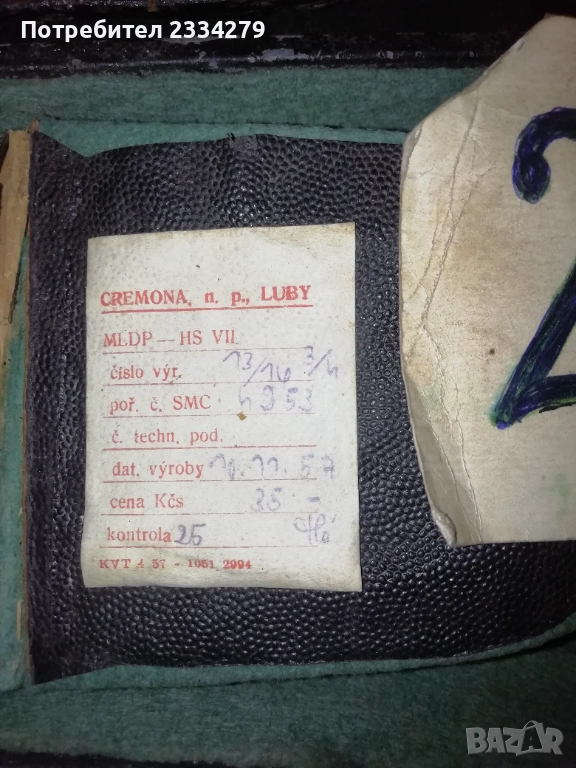 Потребител 2334279
2
CREMONA, n. p., LUBY
MLDP — HS VII.
číslo výr. 13/16 3/4
poř. č. SMC 4953
č. techn. pod.
dat. výroby 10. 11. 57
cena Kčs 35 -
kontrola 25
KVT 4 57 - 1051 2994
BAZAR